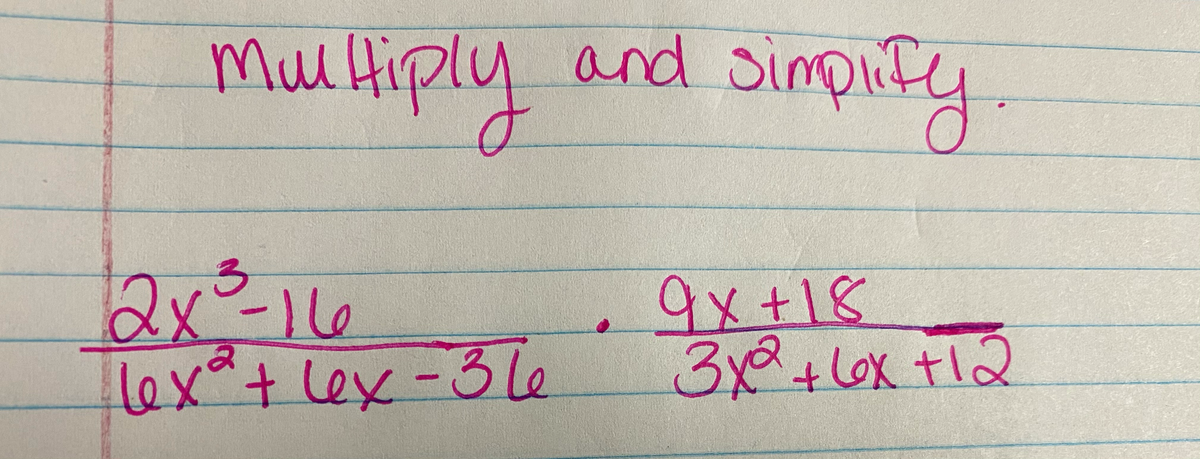 Multiply and simplify.
2x³-16 · 9x+18
6x²+6x-36 3x²+6x+12